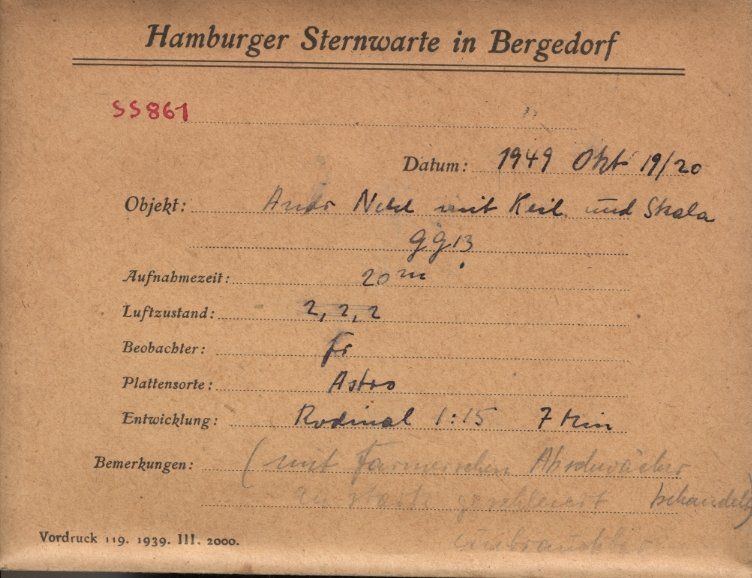 Hamburger Sternwarte in Bergedorf
SS861
Datum: 1949 Okt 19/20
Objekt: Andr Nebel mit Keil und Skala
GG13
Aufnahmezeit: 20m
Luftzustand: 2, 2, 2
Beobachter: Fr
Plattensorte: Astro
Entwicklung: Rodinal 1:15 7 Min
Bemerkungen: (mit Farmerschem Abschwächer
zu stark geschleiert behandelt)
unbrauchbar
Vordruck 119. 1939. III. 2000.